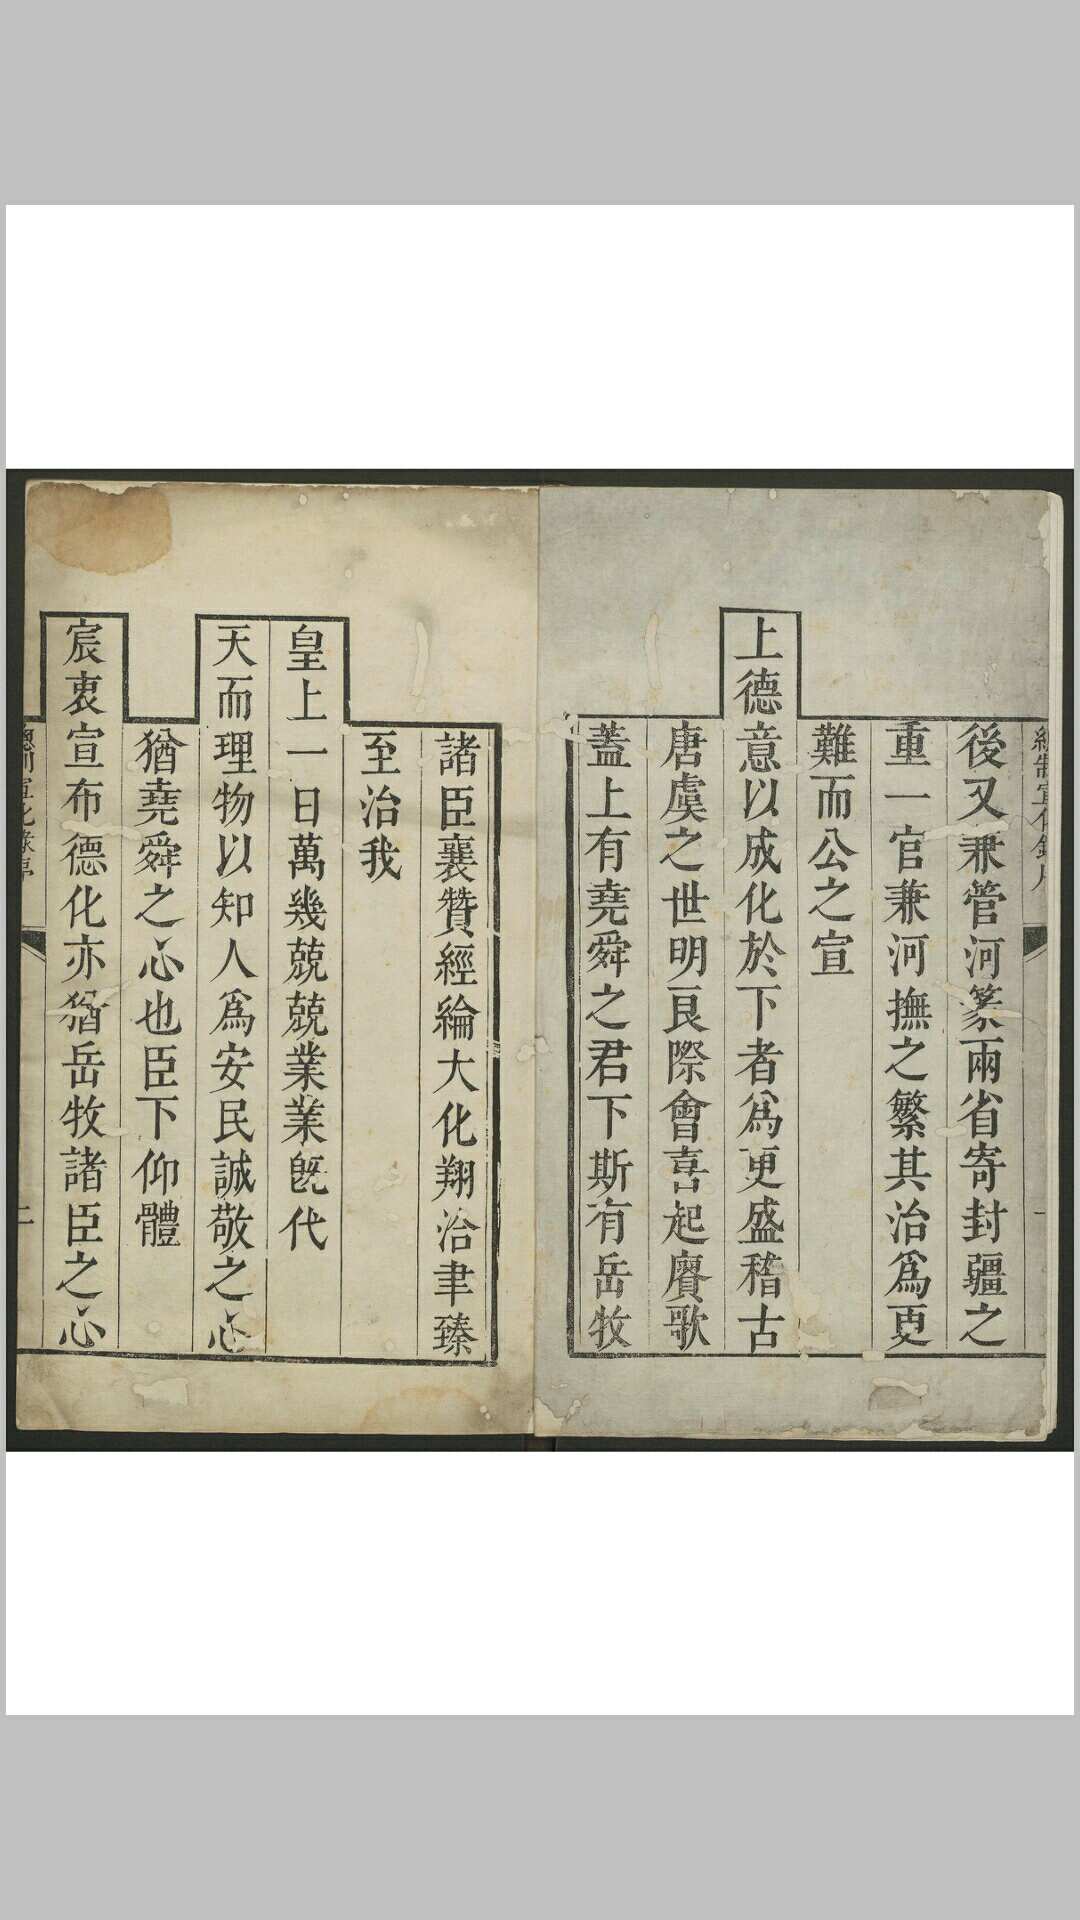 總制宣化錄序
後又兼管河篆兩省寄封疆之
重一官兼河撫之繁其治爲更
難而公之宣
上德意以成化於下者爲更盛稽古
唐虞之世明良際會喜起賡歌
蓋上有堯舜之君下斯有岳牧
諸臣襄贊經綸大化翔洽聿臻
至治我
皇上一日萬幾兢兢業業旣代
天而理物以知人爲安民誠敬之心
猶堯舜之心也臣下仰體
宸衷宣布德化亦猶岳牧諸臣之心
總制宣化錄序
二